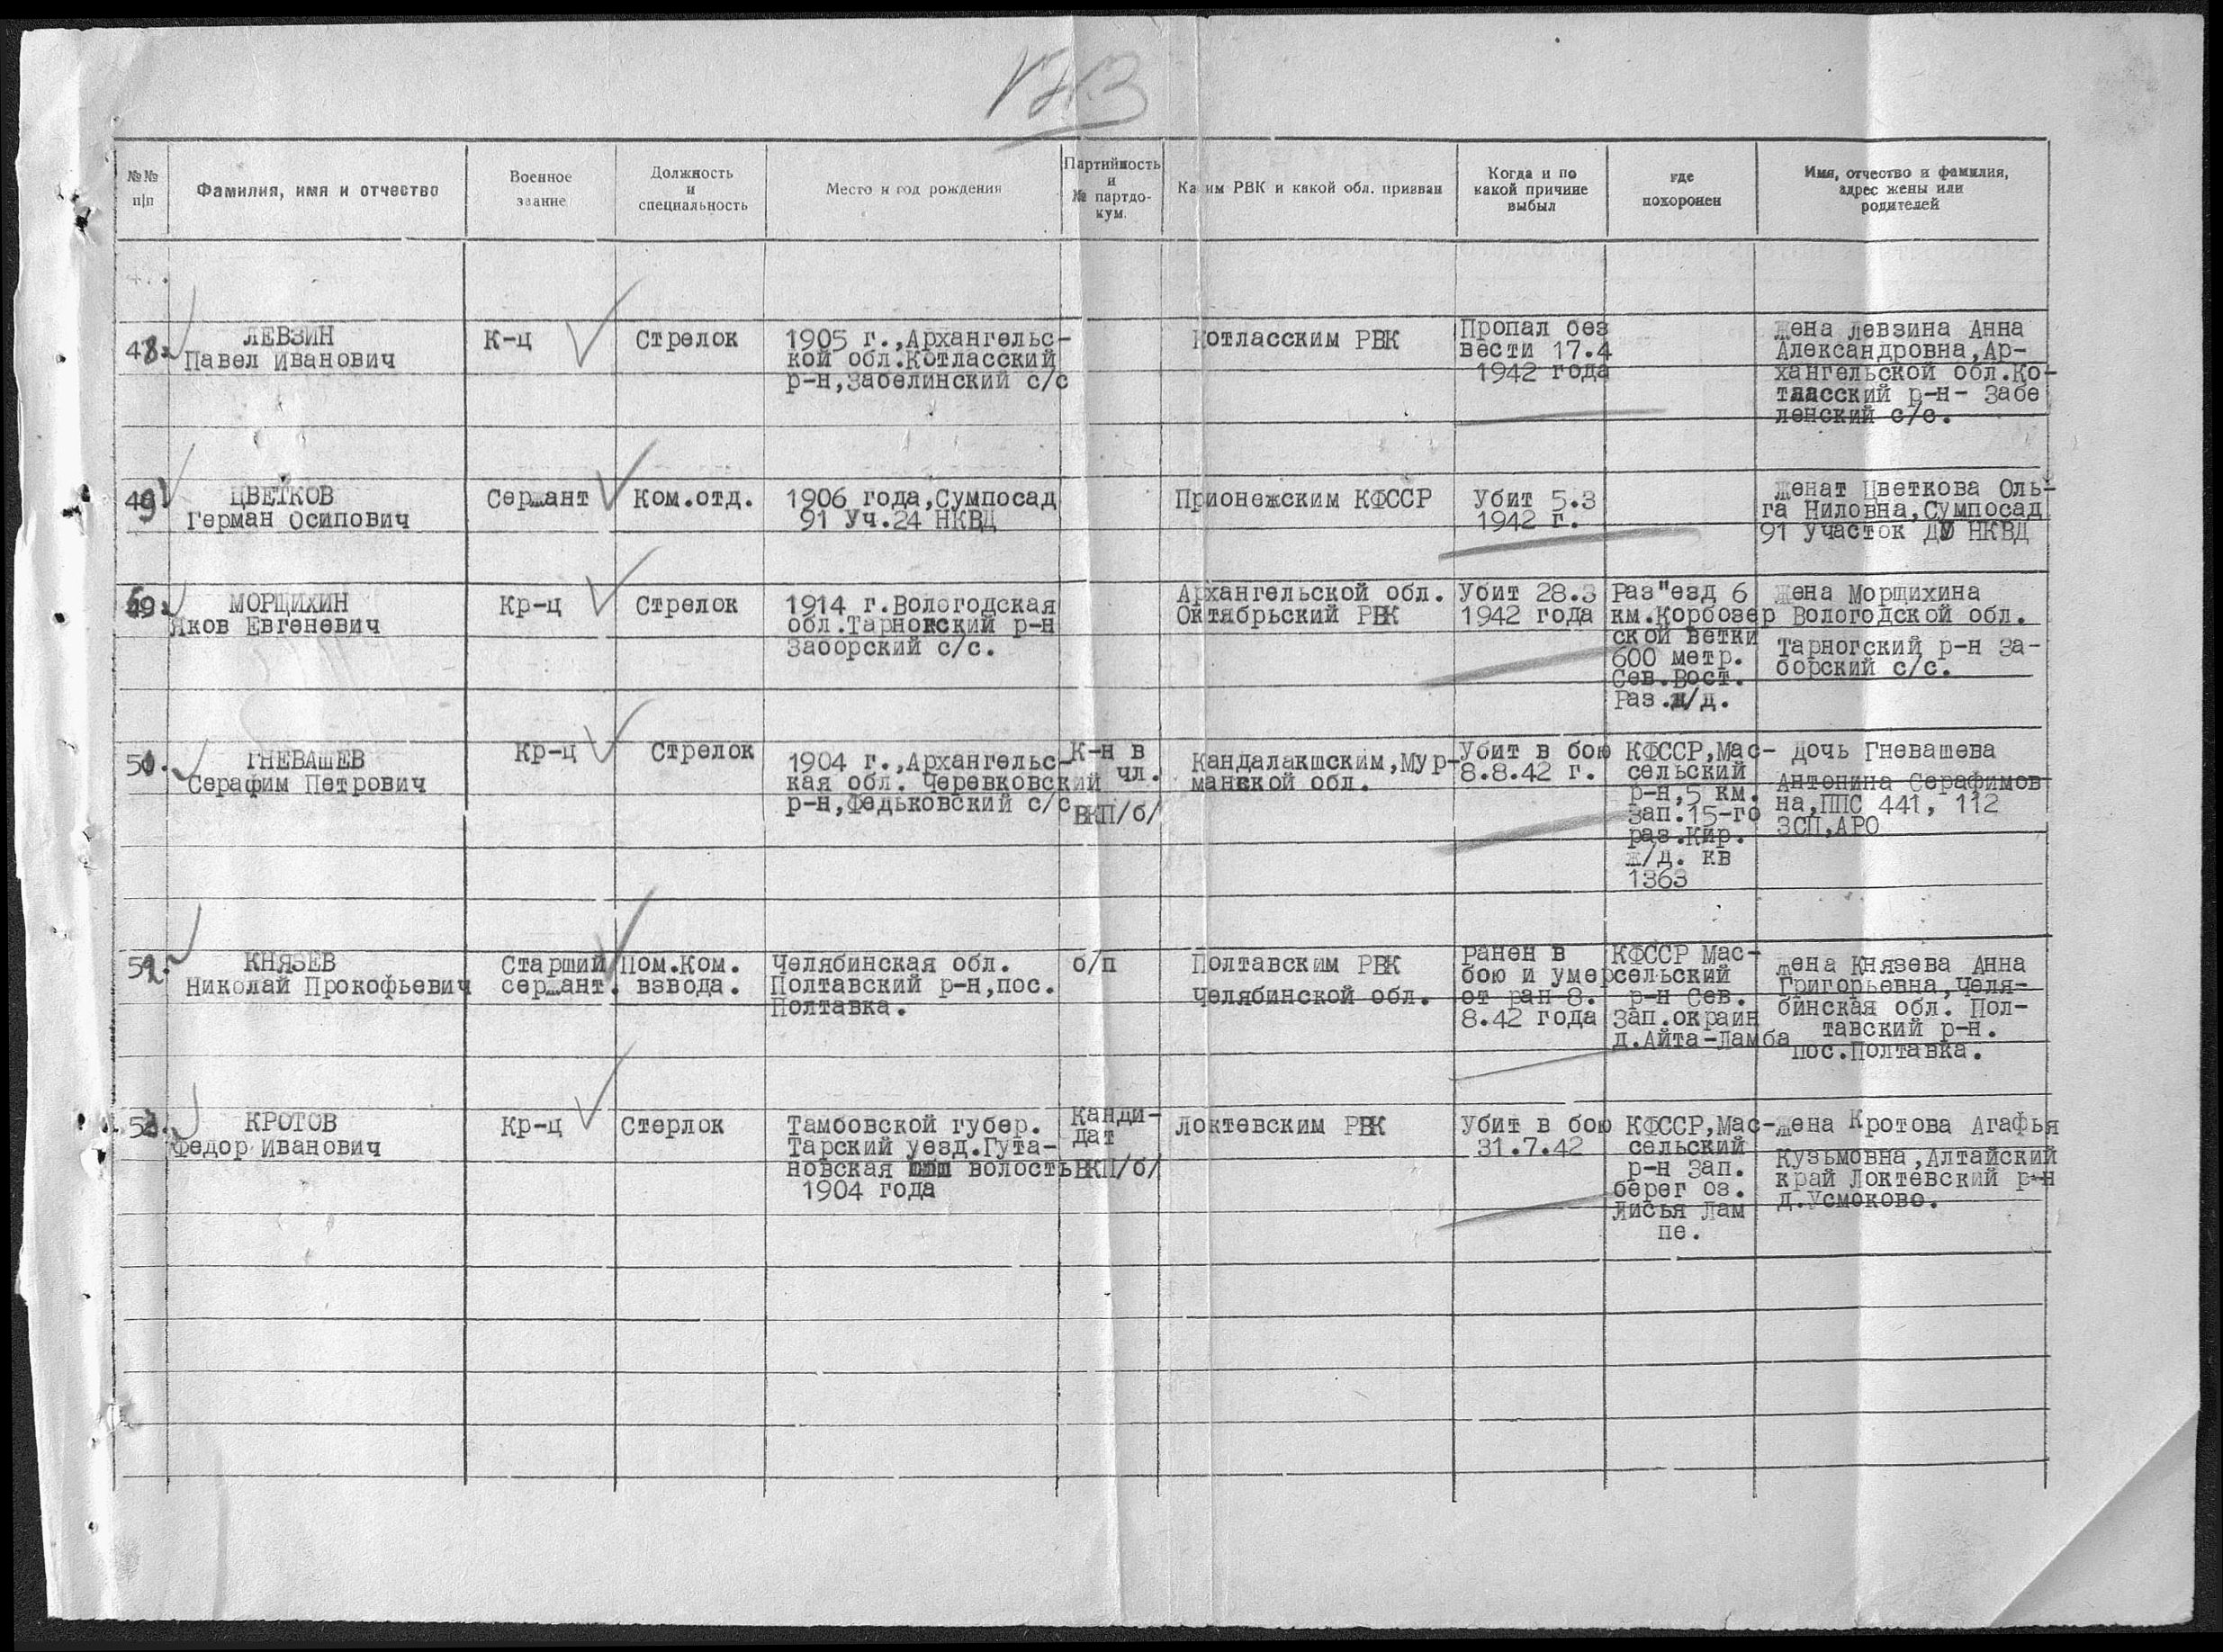 №№ п|п
Фамилия, имя и отчество
Военное звание
Должность и специальность
Место и год рождения
Партийность и № партдокум.
Каким РВК и какой обл. призван
Когда и по какой причине выбыл
где похоронен
Имя, отчество и фамилия, адрес жены или родителей
48.
ЛЕВЗИН
Павел Иванович
К-ц
Стрелок
1905 г.,Архангельс-
кой обл.Котласский
р-н,Забелинский с/с
Котласским РВК
Пропал без
вести 17.4
1942 года
Жена Левзина Анна
Александровна,Ар-
хангельской обл.Ко-
тласский р-н- Забе
ленский с/с.
49
ЦВЕТКОВ
Герман Осипович
Сержант
Ком.отд.
1906 года,Сумпосад
91 Уч.24 НКВД
Прионежским КФССР
Убит 5.3
1942 г.
Женат Цветкова Оль-
га Ниловна,Сумпосад
91 участок ДУ НКВД
МОРЩИХИН
Яков Евгеневич
Кр-ц
Стрелок
1914 г.Вологодская
обл.Тарногский р-н
Заборский с/с.
Архангельской обл.
Октябрьский РВК
Убит 28.3
1942 года
Раз"езд 6
км.Корбозер
ской ветки
600 метр.
Сев.Вост.
Раз.ж/д.
Жена Морщихина
Вологодской обл.
Тарногский р-н За-
борский с/с.
51.
ГНЕВАШЕВ
Серафим Петрович
Кр-ц
Стрелок
1904 г.,Архангельс-
кая обл. Черевковский
р-н,Федьковский с/с
К-н в
чл.
ВКП/б/
Кандалакшским,Мур-
манской обл.
Убит в бою
8.8.42 г.
КФССР,Мас-
сельский
р-н,5 км.
Зап.15-го
раз.Кир.
ж/д. кв
1363
дочь Гневашева
Антонина Серафимов
на,ППС 441, 112
ЗСП,АРО
52.
КНЯЗЕВ
Николай Прокофьевич
Старший
сержант.
Пом.Ком.
взвода.
Челябинская обл.
Полтавский р-н,пос.
Полтавка.
б/п
Полтавским РВК
Челябинской обл.
Ранен в
бою и умер
от ран 8.
8.42 года
КФССР Мас-
сельский
р-н Сев.
Зап.окраин
д.Айта-Ламба
Жена Князева Анна
Григорьевна,Челя-
бинская обл. Пол-
тавский р-н.
пос.Полтавка.
КРОТОВ
Федор Иванович
Кр-ц
Стерлок
Тамбовской губер.
Тарский уезд.Гута-
новская волость
1904 года
Канди-
дат
ВКП/б/
Локтевским РВК
Убит в бою
31.7.42
КФССР,Мас-
сельский
р-н Зап.
берег оз.
Лисья Лам
пе.
Жена Кротова Агафья
Кузьмовна,Алтайский
край Локтевский р-н
д.Усмоково.